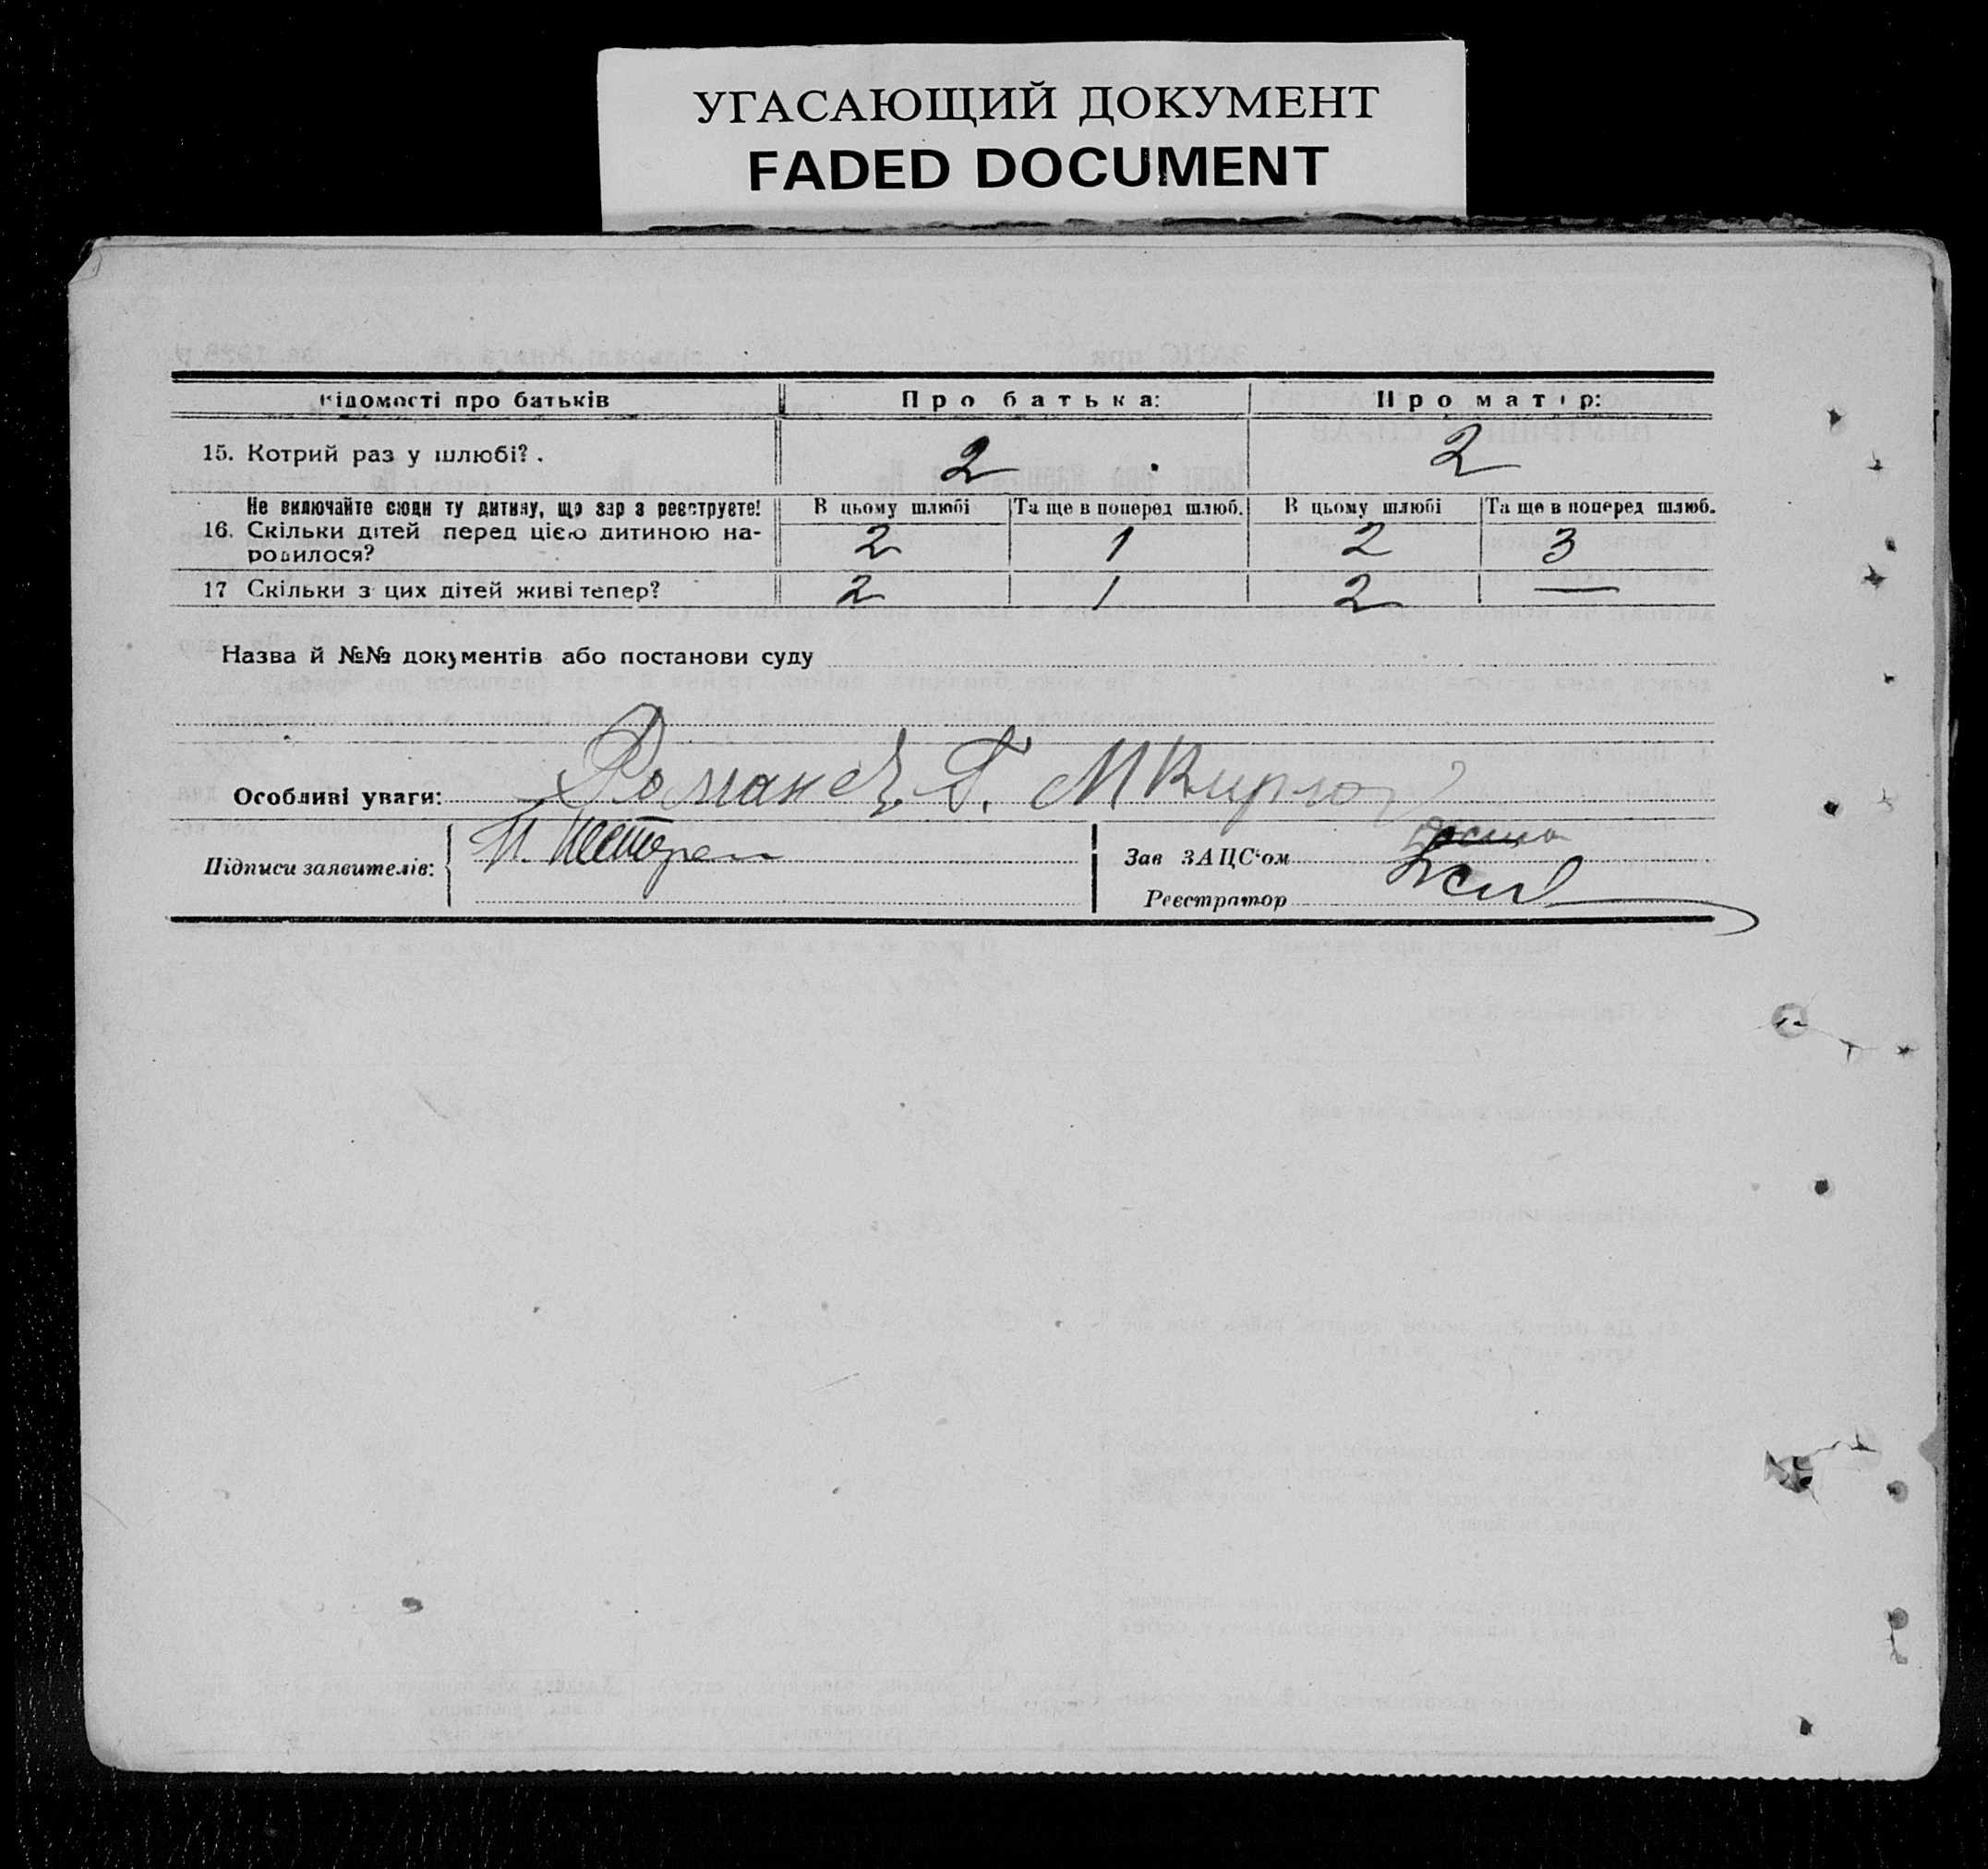 УГАСАЮЩИЙ ДОКУМЕНТ
FADED DOCUMENT
Відомості про батьків Про батька: Про матір:
15. Котрий раз у шлюбі? . 2 2
Не включайте сюди ту дитину, що зараз реєструєте! В цьому шлюбі Та ще в поперед шлюб. В цьому шлюбі Та ще в поперед шлюб.
16. Скільки дітей перед цією дитиною на-
родилося? 2 1 2 3
17 Скільки з цих дітей живі тепер? 2 1 2 —
Назва й №№ документів або постанови суду
Особливі уваги: Романец. Г.
Підписи заявителів:
Зав ЗАЦС'ом
Реєстратор